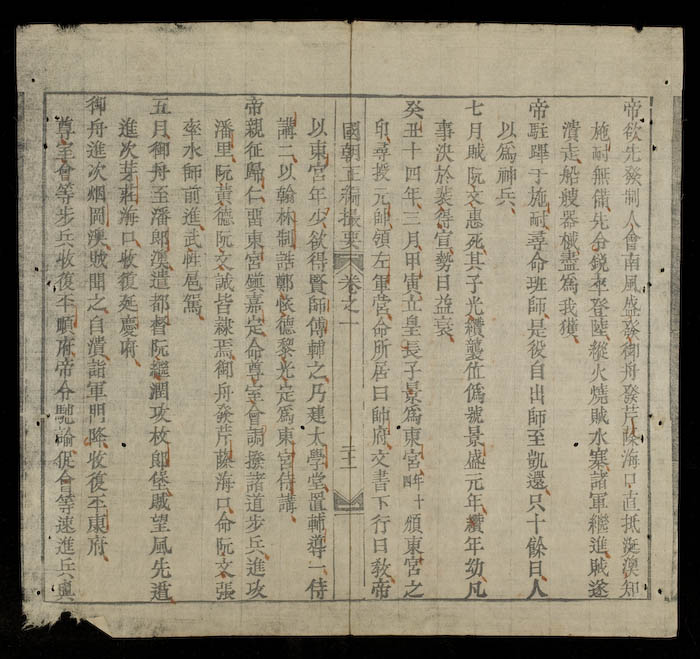 帝欲先發制人會南風盛發御舟發芹蒢海口直抵涎澳知
施耐無備先分鏡率登陸縱火燒賊水寨諸軍繼進賊遂
潰走船艘器械盡爲我獲
帝駐蹕于施耐尋命班師是役自出師至凱還只十餘日人
以爲神兵
七月賊阮文惠死其子光纘襲位僞號景盛元年纘年幼凡
事決於裴得宣勢日益衰
癸丑十四年三月甲寅立皇長子景爲東宮年十四頒東宮之
印尋授元帥領左軍營命所居曰帥府文書下行曰敎帝
國朝正編撮要 卷之一 二十二
以東宮年少欲得賢師傅輔之乃建太學堂置輔導一侍
講二以翰林制誥鄭懷德黎光定爲東宮侍講
帝親征歸仁畱東宮鎭嘉定命尊室會調撥諸道步兵進攻
潘里阮黃德阮文誠皆隸焉御舟發芹蒢海口命阮文張
率水師前進武性扈駕
五月御舟至潘郎澳遣都督阮繼潤攻枚郎堡賊望風先遁
進次芽莊海口收復延慶府
御舟進次烟岡澳賊聞之自潰詣軍門降收復平東府
尊室會等步兵收復平順府帝分馳諭促會等速進兵與